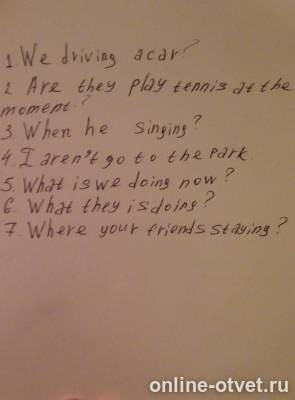 1. We driving a car?
2. Are they play tennis at the
moment?
3. When he singing?
4. I aren't go to the park.
5. What is we doing now?
6. What they is doing?
7. Where your friends staying?
online-otvet.ru